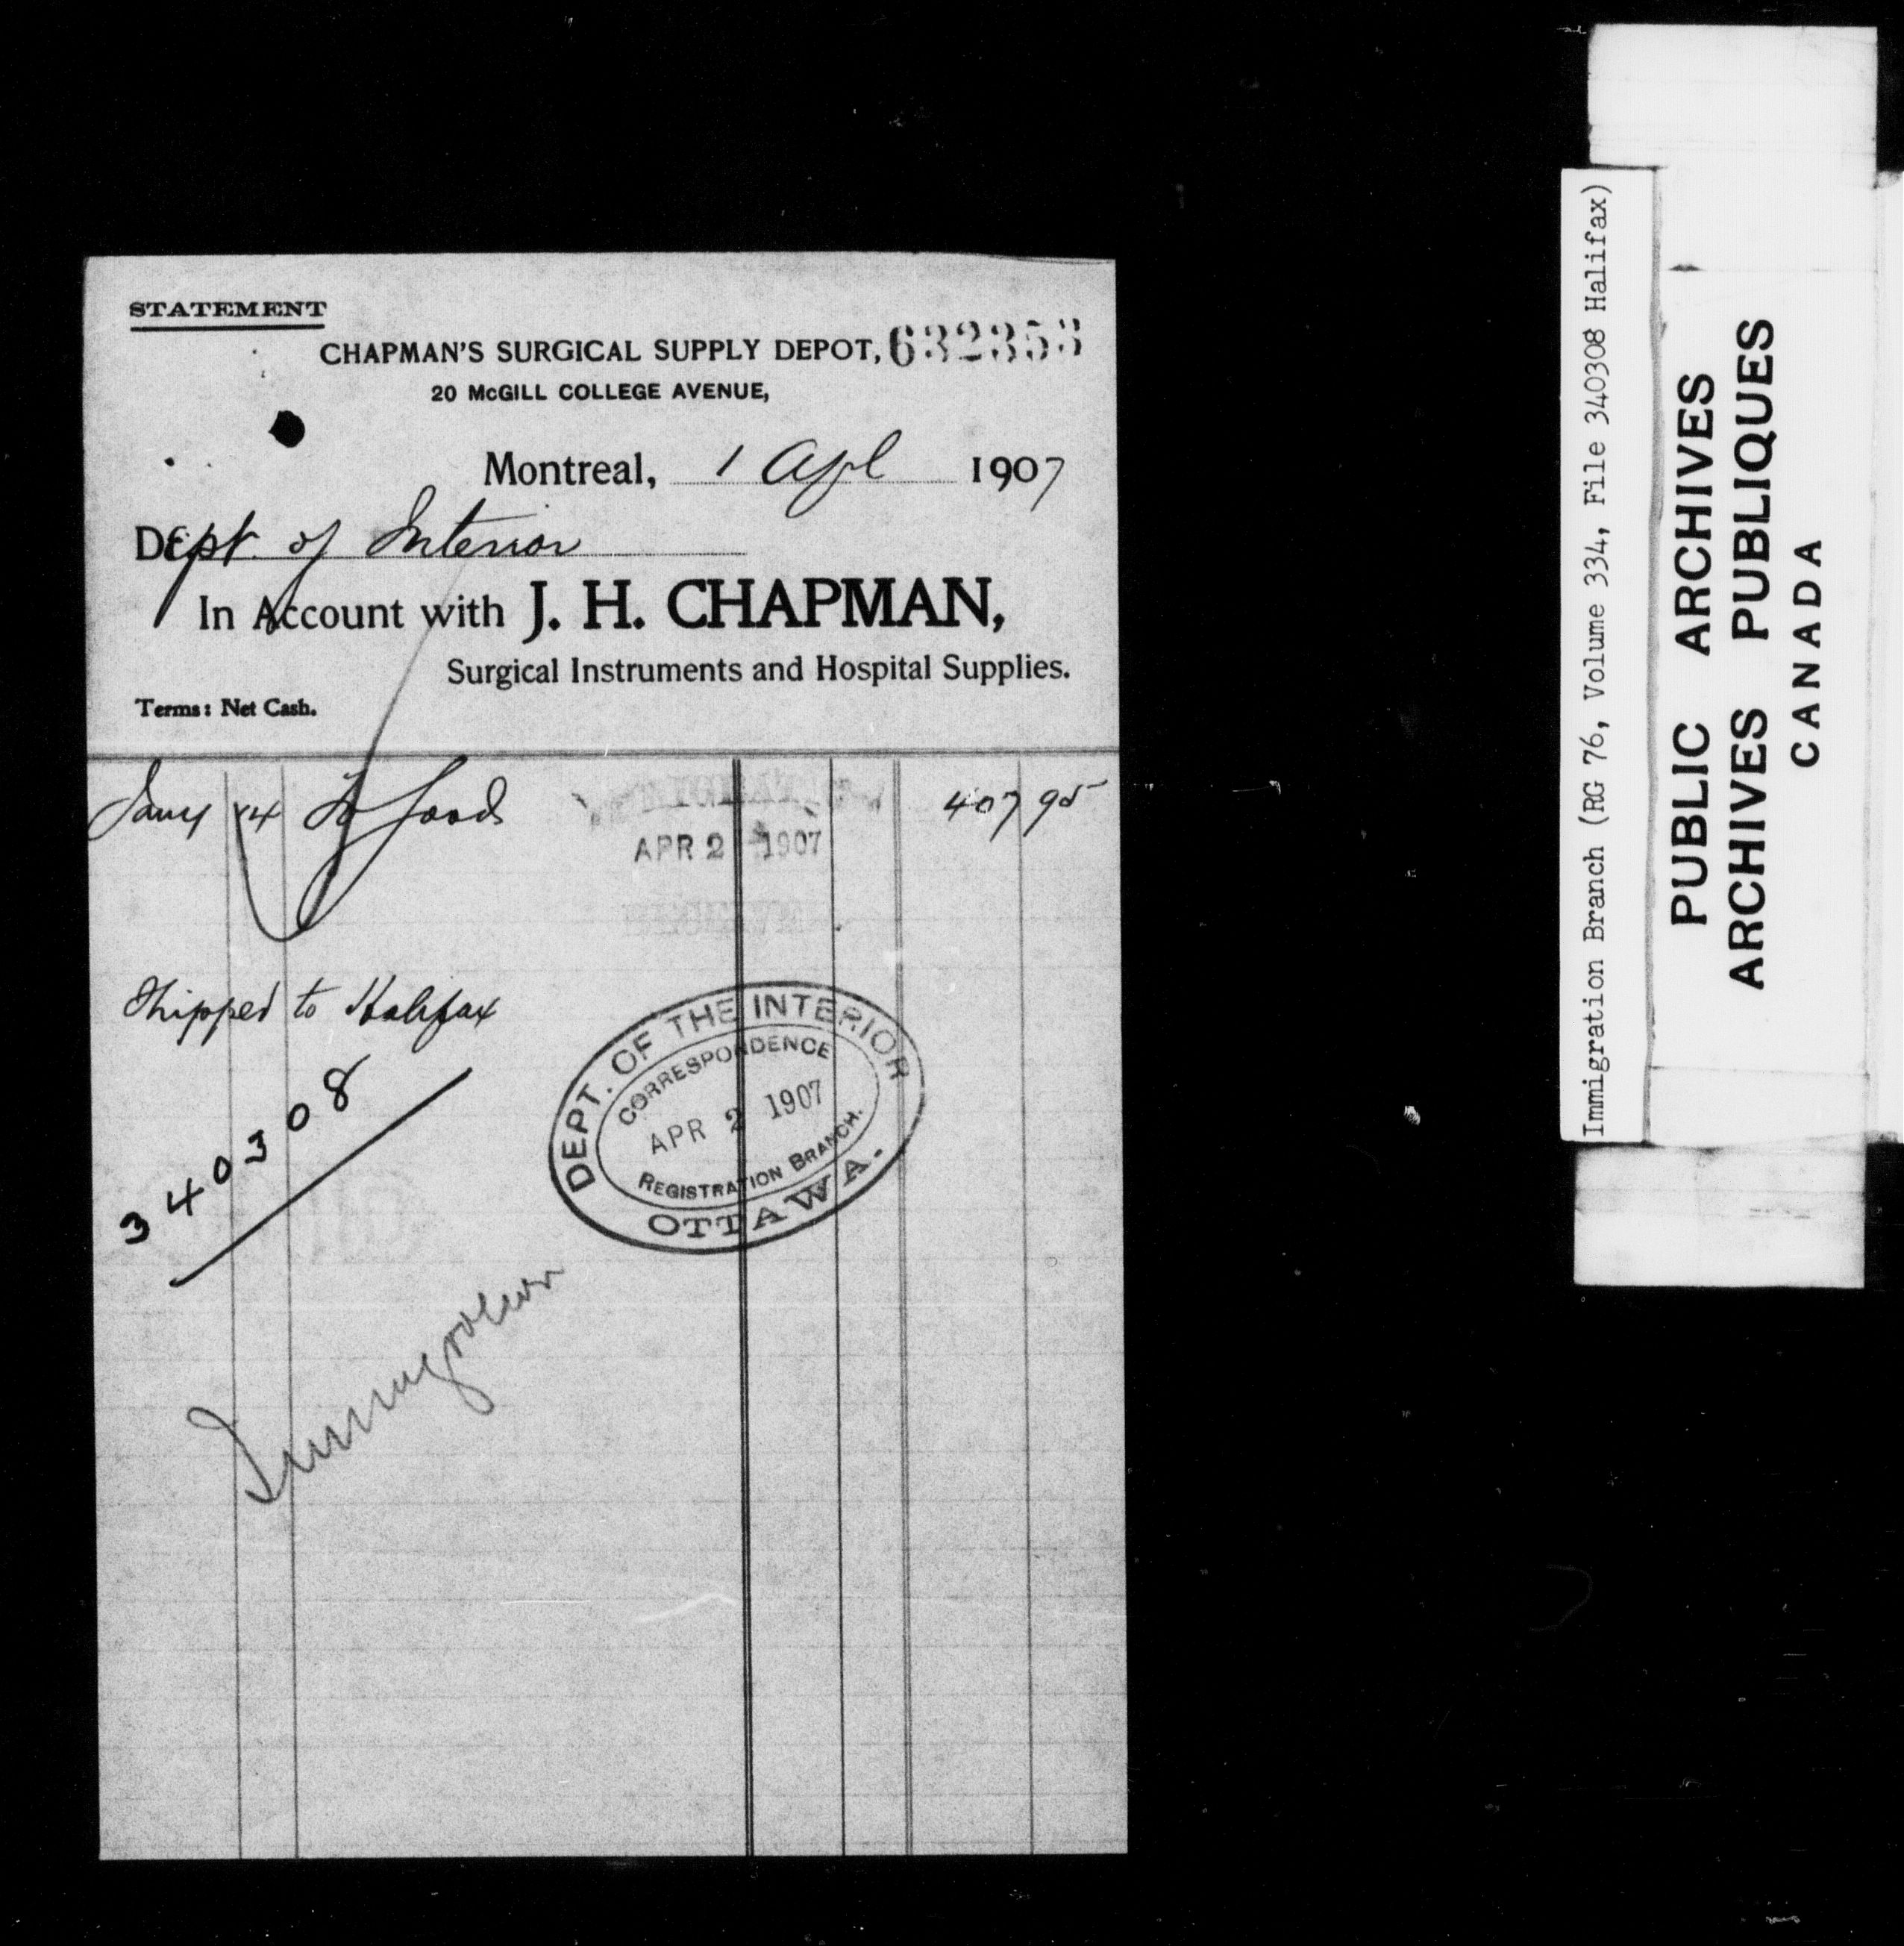 STATEMENT
CHAPMAN'S SURGICAL SUPPLY DEPOT, 632353
20 McGILL COLLEGE AVENUE,
Montreal, 1 Apl 1907
Dept. of Interior
In Account with J. H. CHAPMAN,
Surgical Instruments and Hospital Supplies.
Terms: Net Cash.
Jany 14 To Goods 407 95
APR 2 1907
Shipped to Halifax
340308
DEPT. OF THE INTERIOR
CORRESPONDENCE
APR 2 1907
REGISTRATION BRANCH.
OTTAWA.
Immigration
Immigration Branch (RG 76, Volume 334, File 340308 Halifax)
PUBLIC ARCHIVES
ARCHIVES PUBLIQUES
CANADA